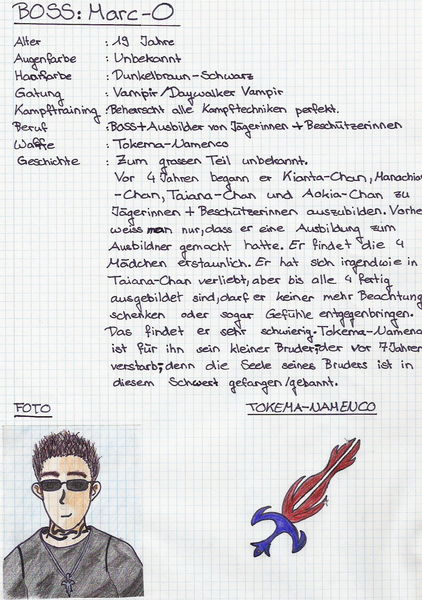 BOSS: Marc-O
Alter : 19 Jahre
Augenfarbe : Unbekannt
Haarfarbe : Dunkelbraun-Schwarz
Gatung : Vampir/Daywalker Vampir
Kampftraining : Beherscht alle Kampftechniken perfekt.
Beruf : Boss+Ausbilder von Jägerinnen + Beschützerinnen
Waffe : Tokema-Namenco
Geschichte : Zum grossen Teil unbekannt.
Vor 4 Jahren begann er Kianta-Chan, Manachia
-Chan, Taiana-Chan und Aokia-Chan zu
Jägerinnen + Beschützerinnen auszubilden. Vorhe
weiss man nur, dass er eine Ausbildung zum
Ausbildner gemacht hatte. Er findet die 4
Mädchen erstaunlich. Er hat sich irgendwie in
Taiana-Chan verliebt, aber bis alle 4 fertig
ausgebildet sind, darf er keiner mehr Beachtung
schenken oder sogar Gefühle entgegenbringen.
Das findet er sehr schwierig. Tokema-Namenco
ist für ihn sein kleiner Bruder, der vor 7 Jahren
verstarb, denn die Seele seines Bruders ist in
diesem Schwert gefangen/gebannt.
FOTO
TOKEMA-NAMENCO